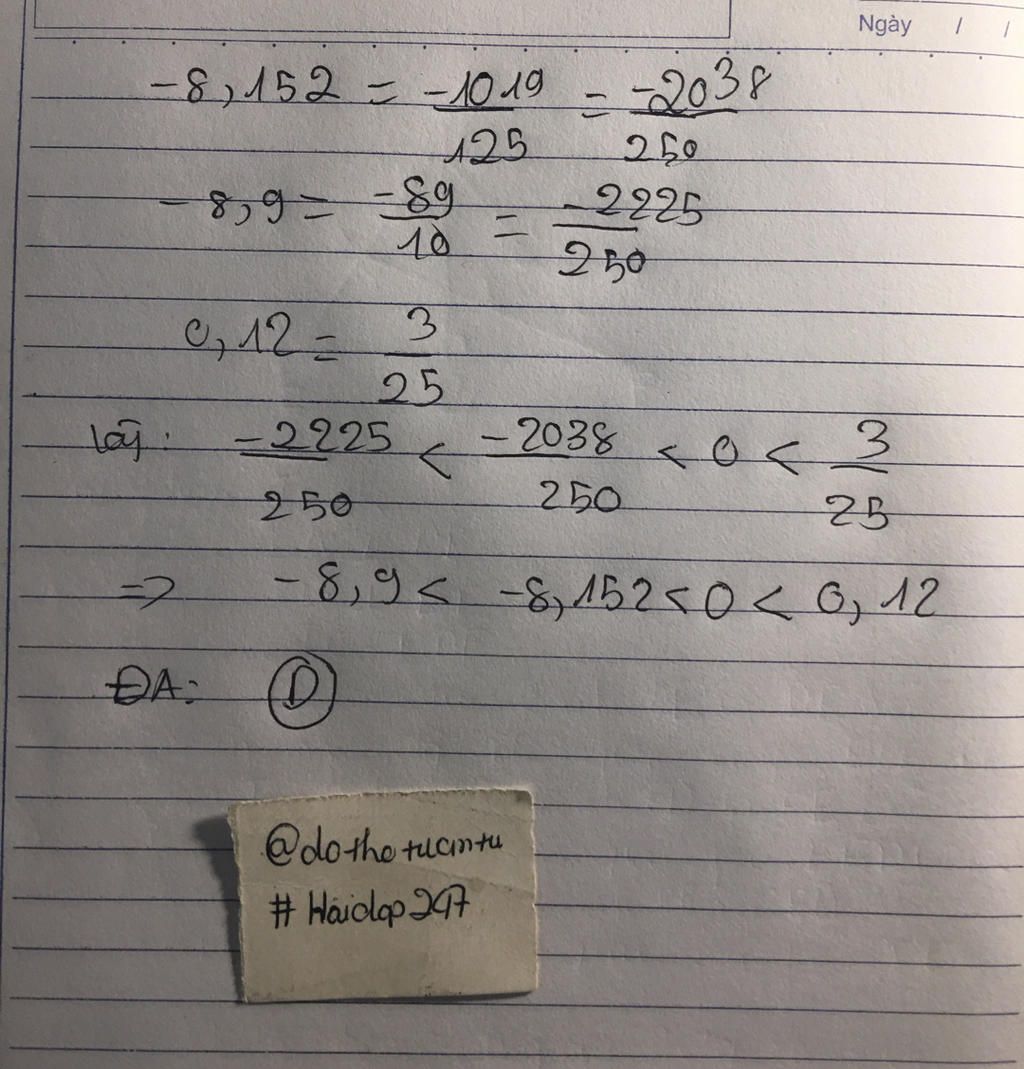 Ngày / /
-8,152 = -1019/125 = -2038/250
-8,9 = -89/10 = -2225/250
0,12 = 3/25
Vậy: -2225/250 < -2038/250 < 0 < 3/25
=> -8,9 < -8,152 < 0 < 0,12
ĐA: D
@dothetuantu
#Hoidap247